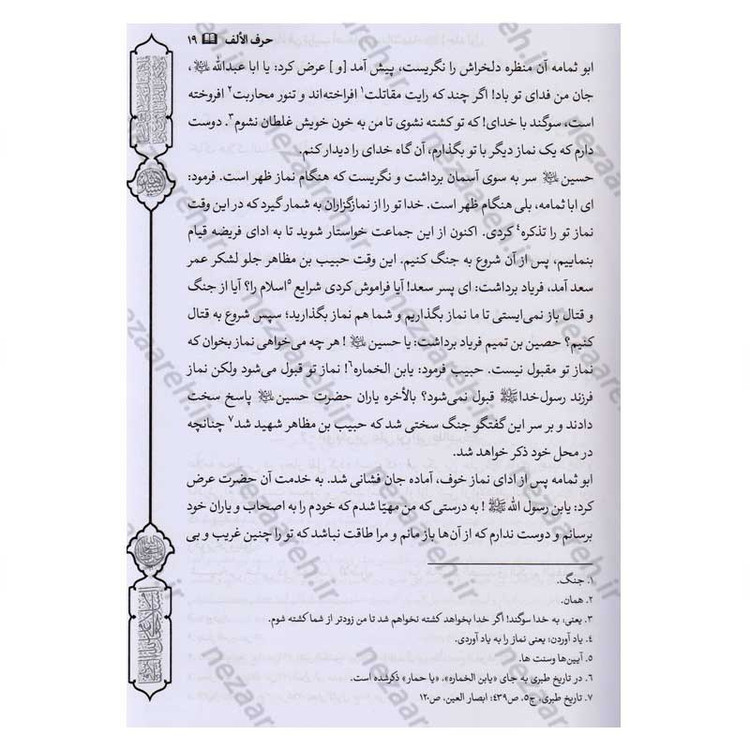 حرف الألف ۱۹
ابو ثمامه آن منظره دلخراش را نگریست، پیش آمد [و] عرض کرد: یا ابا عبدالله ﷺ،
جان من فدای تو باد! اگر چند که رایت مقاتلت۱ افراخته‌اند و تنور محاربت۲ افروخته
است، سوگند با خدای! که تو کشته نشوی تا من به خون خویش غلطان نشوم۳. دوست
دارم که یک نماز دیگر با تو بگذارم، آن گاه خدای را دیدار کنم.
حسین سر به سوی آسمان برداشت و نگریست که هنگام نماز ظهر است. فرمود:
ای ابا ثمامه، بلی هنگام ظهر است. خدا تو را از نمازگزاران به شمار گیرد که در این وقت
نماز تو را تذکره۴ کردی. اکنون از این جماعت خواستار شوید تا به ادای فریضه قیام
بنماییم، پس از آن شروع به جنگ کنیم. این وقت حبیب بن مظاهر جلو لشکر عمر
سعد آمد، فریاد برداشت: ای پسر سعد! آیا فراموش کردی شرایع۵ اسلام را؟ آیا از جنگ
و قتال باز نمی‌ایستی تا ما نماز بگذاریم و شما هم نماز بگذارید؛ سپس شروع به قتال
کنیم؟ حصین بن تمیم فریاد برداشت: یا حسین! هر چه می‌خواهی نماز بخوان که
نماز تو مقبول نیست. حبیب فرمود: یابن الخماره۶! نماز تو قبول می‌شود ولکن نماز
فرزند رسول‌خدا قبول نمی‌شود؟ بالأخره یاران حضرت حسین پاسخ سخت
دادند و بر سر این گفتگو جنگ سختی شد که حبیب بن مظاهر شهید شد۷ چنانچه
در محل خود ذکر خواهد شد.
ابو ثمامه پس از ادای نماز خوف، آماده جان فشانی شد. به خدمت آن حضرت عرض
کرد: یابن رسول الله! به درستی که من مهیّا شدم که خودم را به اصحاب و یاران خود
برسانم و دوست ندارم که از آن‌ها باز مانم و مرا طاقت نباشد که تو را چنین غریب و بی
۱. جنگ.
۲. همان.
۳. یعنی، به خدا سوگند! اگر خدا بخواهد کشته نخواهم شد تا من زودتر از شما کشته شوم.
۴. یاد آوردن؛ یعنی نماز را به یاد آوردی.
۵. آیین‌ها وسنت ها.
۶. در تاریخ طبری به جای «یابن الخماره»، «یا حمار» ذکرشده است.
۷. تاریخ طبری، ج۵، ص۴۳۹؛ ابصار العین، ص۱۲۰.
nezaareh.ir